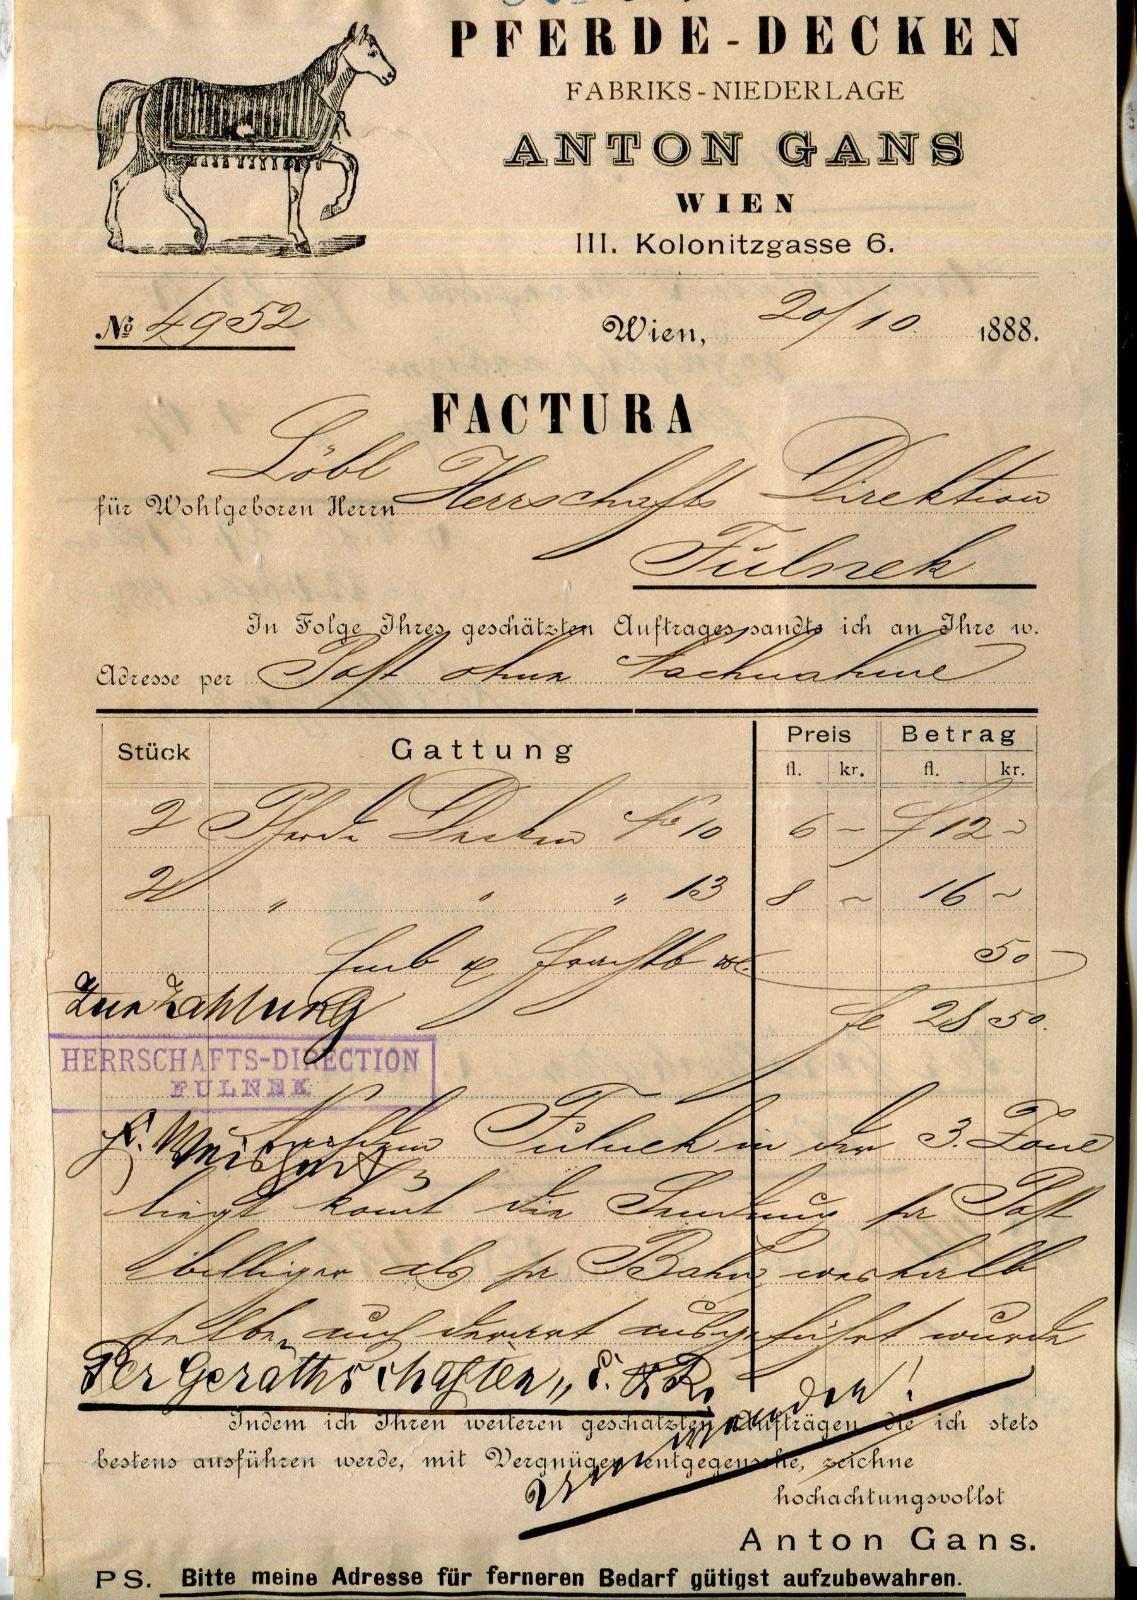 PFERDE-DECKEN
FABRIKS-NIEDERLAGE
ANTON GANS
WIEN
III. Kolonitzgasse 6.
No 4952 Wien, 20/10 1888.
FACTURA
Löbl
für Wohlgeboren Herrn Herrschafts Direktion
Fulnek
In Folge Ihres geschätzten Auftrages sandte ich an Ihre w.
Adresse per Post ohne Nachnahme
Stück Gattung Preis Betrag
fl. kr. fl. kr.
2 Pferde Decken No 10 6 – f 12 –
2 " " " 13 8 – 16 –
Emb & Frachtb 50
Zur Zahlung
28 50.
HERRSCHAFTS-DIRECTION
FULNEK
Nachdem Fulnek in der 3. Zone
liegt komt die Sendung pr Post
billiger als pr Bahn, weshalb
selbe auch derart ausgeführt wurde
Per Geräthschaften
Indem ich Ihren weiteren geschätzten Aufträgen die ich stets
bestens ausführen werde, mit Vergnügen entgegensehe, zeichne
hochachtungsvollst
Anton Gans.
PS. Bitte meine Adresse für ferneren Bedarf gütigst aufzubewahren.